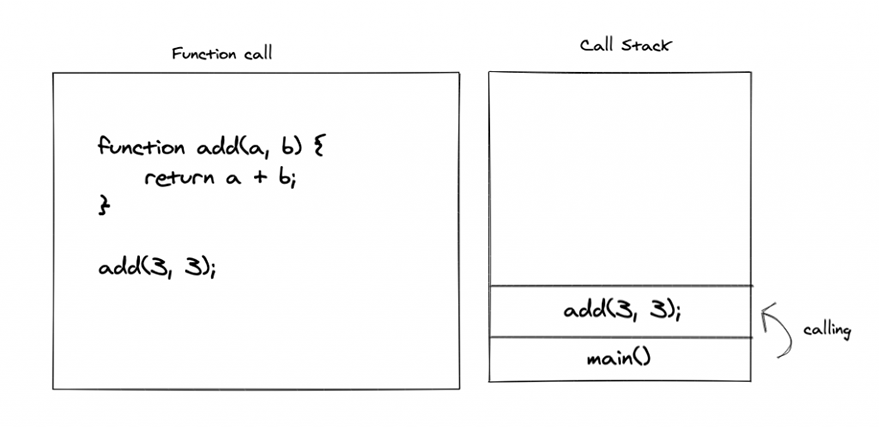 Function call
function add(a, b) {
return a + b;
}
add(3, 3);
Call Stack
add(3, 3);
calling
main()